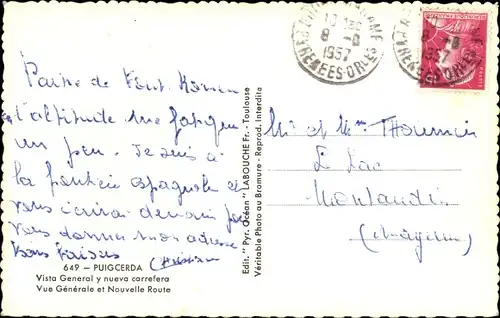 10 H
8 - 8
1957
PYRENEES-ORLES
8 - 8
1957
Partie de Font Romeu
l'altitude me fatigue
un peu. Je suis à
la frontière espagnole et
vous écrirai demain pour
vous donner mon adresse
Bons baisers
Christiane
649 - PUIGCERDA
Vista General y nueva carretera
Vue Générale et Nouvelle Route
Edit. "Pyr. Océan" LABOUCHE Fr. - Toulouse
Véritable Photo au Bromure - Reprod. Interdite
Mr et Mme
Le Lac
Montaudin
(Mayenne)